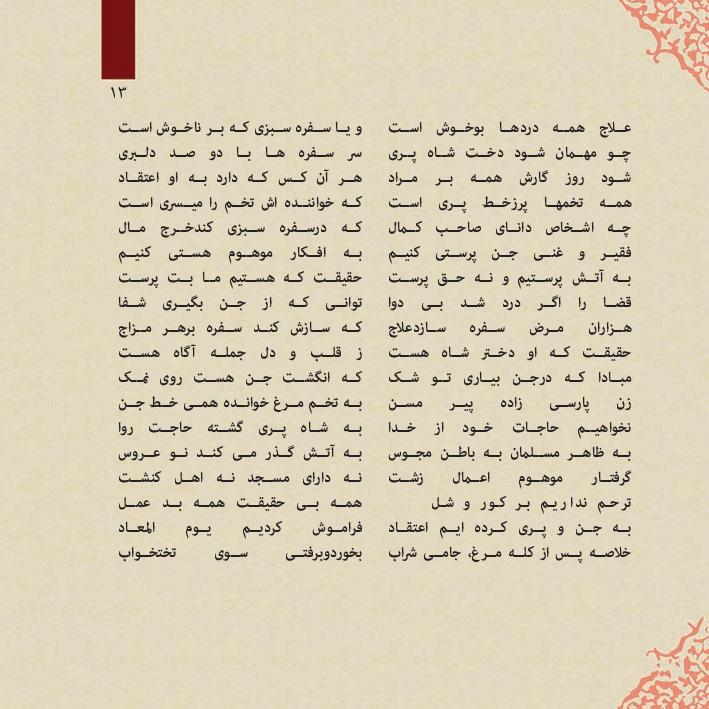 ۱۳
علاج همه دردها بوخوش است و یا سفره سبزی که بر ناخوش است
چو مهمان شود دخت شاه پری سر سفره ها با دو صد دلبری
شود روز گارش همه بر مراد هر آن کس که دارد به او اعتقاد
همه تخمها پرزخط پری است که خواننده اش تخم را میسری است
چه اشخاص دانای صاحب کمال که درسفره سبزی کندخرج مال
فقیر و غنی جن پرستی کنیم به افکار موهوم هستی کنیم
به آتش پرستیم و نه حق پرست حقیقت که هستیم ما بت پرست
قضا را اگر درد شد بی دوا توانی که از جن بگیری شفا
هزاران مرض سفره سازدعلاج که سازش کند سفره برهر مزاج
حقیقت که او دختر شاه هست ز قلب و دل جمله آگاه هست
مبادا که درجن بیاری تو شک که انگشت جن هست روی نمک
زن پارسی زاده پیر مسن به تخم مرغ خوانده همی خط جن
نخواهیم حاجات خود از خدا به شاه پری گشته حاجت روا
به ظاهر مسلمان به باطن مجوس به آتش گذر می کند نو عروس
گرفتار موهوم اعمال زشت نه دارای مسجد نه اهل کنشت
ترحم نداریم بر کور و شل همه بی حقیقت همه بد عمل
به جن و پری کرده ایم اعتقاد فراموش کردیم یوم المعاد
خلاصه پس از کله مرغ، جامی شراب بخوردوبرفتی سوی تختخواب